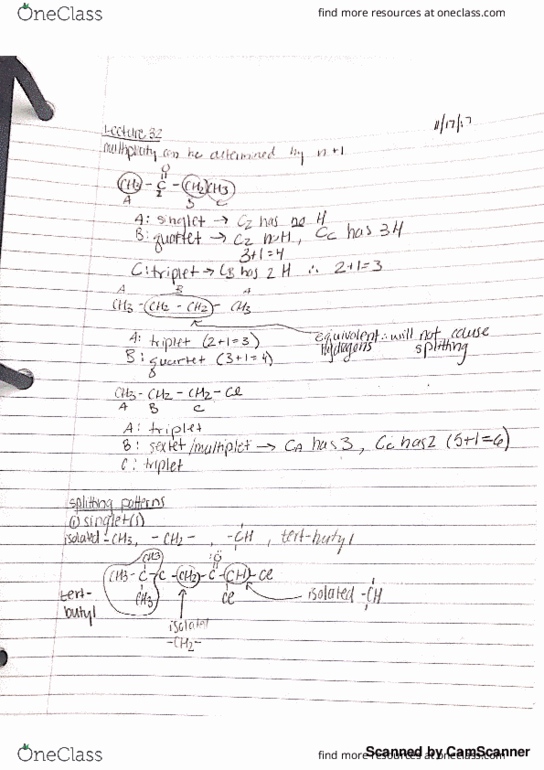 OneClass
find more resources at oneclass.com
Lecture 32
11/17/17
multiplicity can be determined by n+1
O
CH3 - C - CH2 CH3
A Z B C
A: singlet → Cz has no H
B: quartet → Cz no H, Cc has 3H
3+1=4
C: triplet → CB has 2 H ∴ 2+1=3
A B A
CH3 - CH2 - CH2 - CH3
A: triplet (2+1=3)
equivalent ∴ will not cause
hydrogens splitting
B: quartet (3+1=4)
CH3 - CH2 - CH2 - Cl
A B C
A: triplet
B: sextet/multiplet → CA has 3, Cc has 2 (5+1=6)
C: triplet
splitting patterns
① singlet(s)
isolated -CH3, -CH2-, -CH, tert-butyl
CH3 O
CH3 - C - C - CH2 - C - CH - Cl
CH3 Cl
isolated -CH
tert-
butyl
isolated
-CH2-
OneClass
find more resources at oneclass.com
Scanned by CamScanner